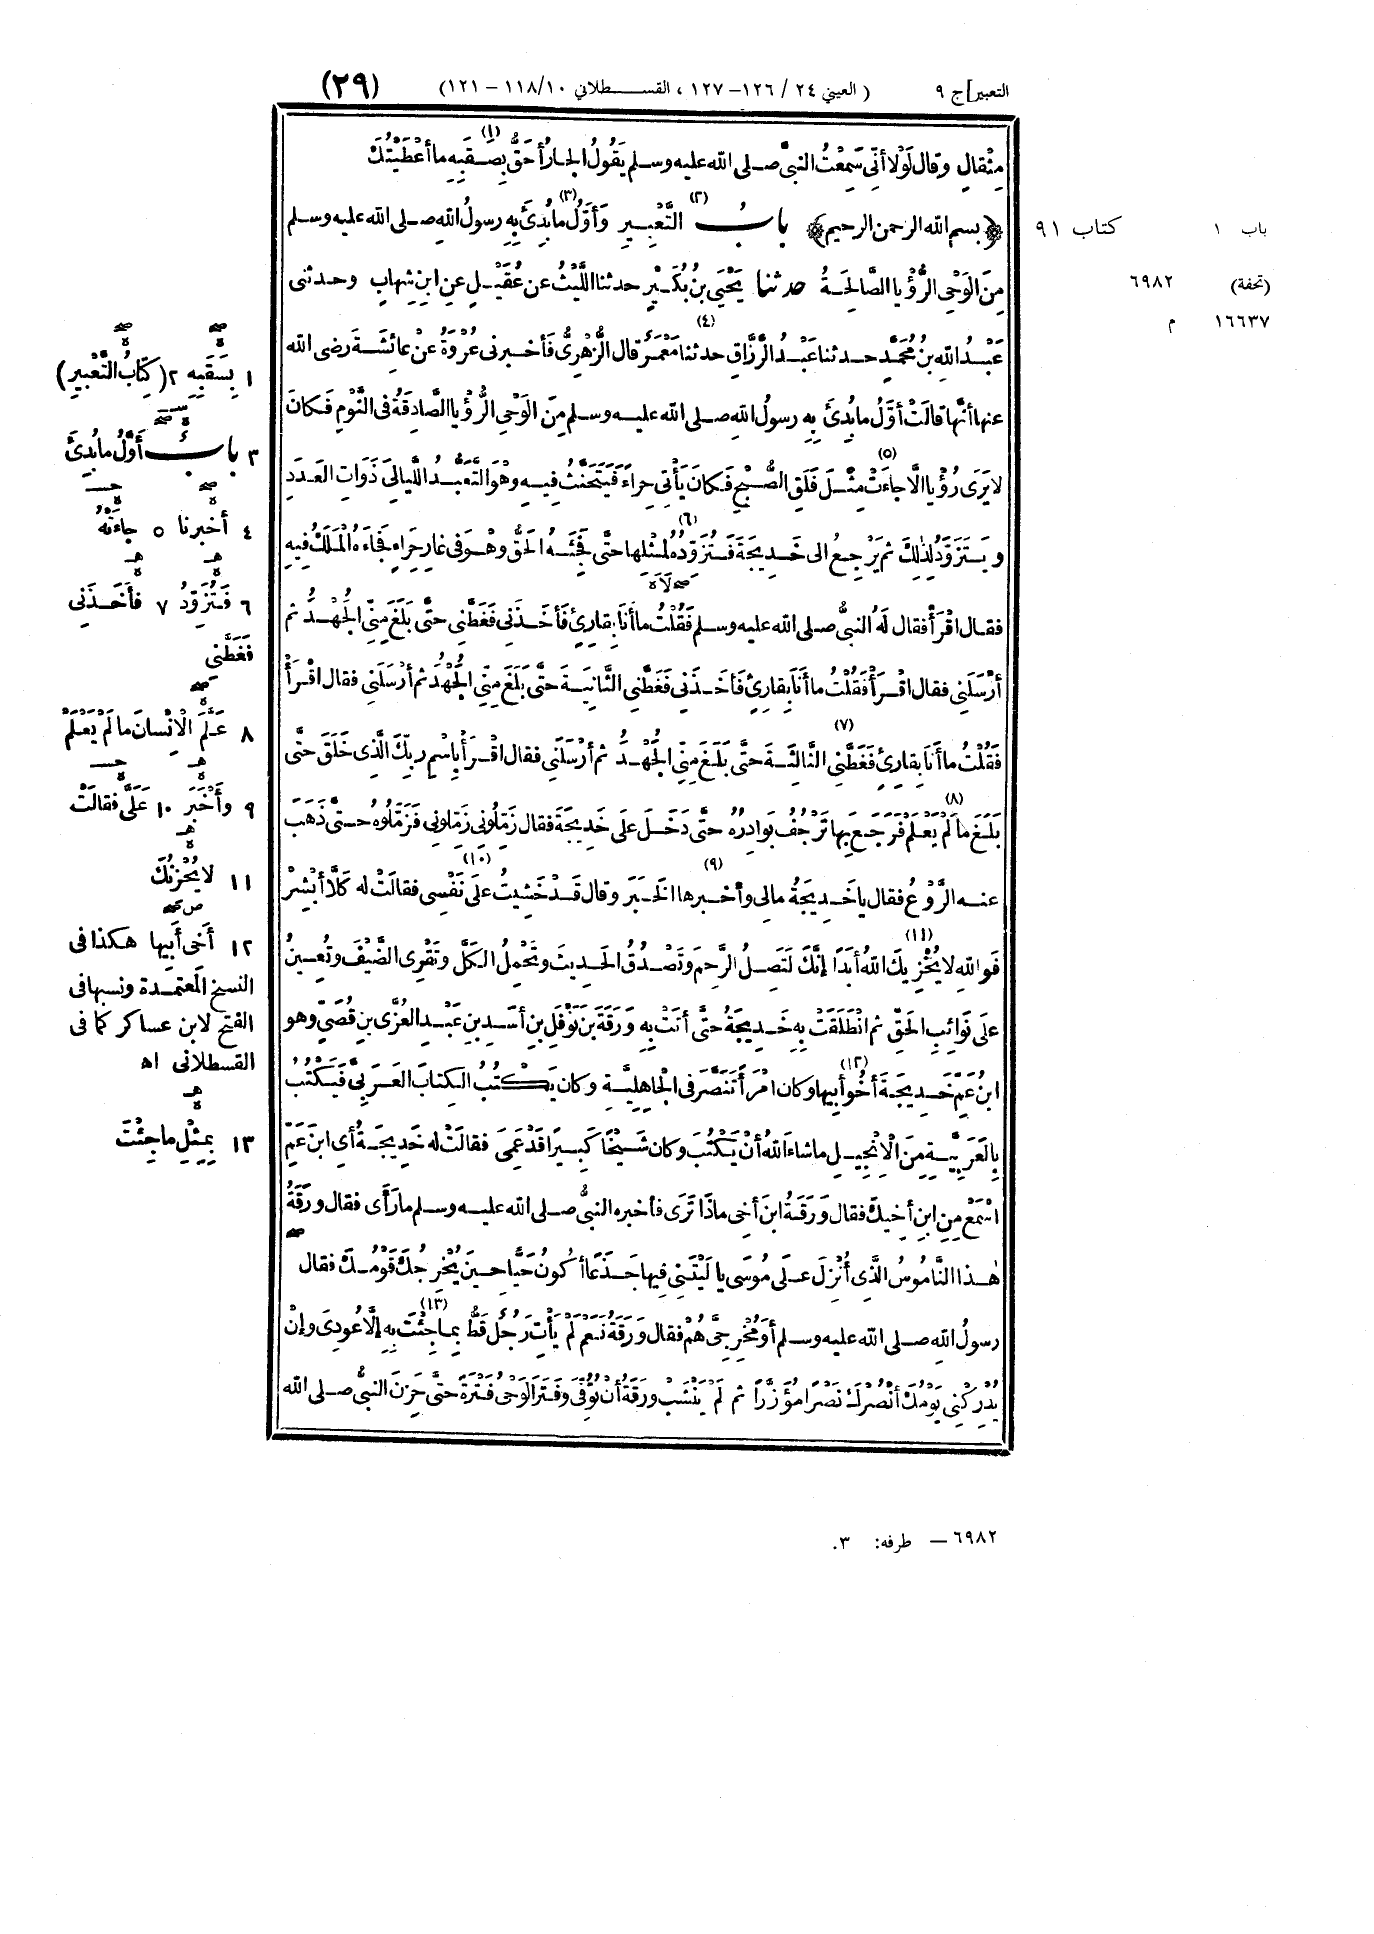 التعبير] ج ٩ ( العيني ٢٤ / ١٢٦ – ١٢٧ ، القسطلاني ١١٨/١٠ – ١٢١) (٢٩)
مِثْقالٍ وقال لَوْلا أنِّي سَمِعْتُ النبيَّ صلى الله عليه وسلم يَقُولُ الجارُ أحَقُّ بِصَقَبِهِ (١) ما أعْطَيْتُكَ
﴿بسم الله الرحمن الرحيم﴾ بابُ (٢) التَّعْبِيرِ وَأوَّلُ (٣) ما بُدِئَ بِهِ رسولُ اللهِ صلى الله عليه وسلم
مِنَ الوَحْيِ الرُّؤْيا الصَّالِحَةُ حدثنا يَحْيَى بنُ بُكَيْرٍ حدثنا اللَّيْثُ عن عُقَيْلٍ عنِ ابنِ شِهابٍ وحدثني
عَبْدُ اللهِ بنُ مُحَمَّدٍ حدثنا عَبْدُ الرَّزَّاقِ حدثنا (٤) مَعْمَرٌ قال الزُّهْرِيُّ فأخبرني عُرْوَةُ عنْ عائشَةَ رضى الله
عنها أنَّها قالَتْ أوَّلُ ما بُدِئَ بِهِ رسولُ اللهِ صلى الله عليه وسلم مِنَ الوَحْيِ الرُّؤْيا الصَّادِقَةُ في النَّوْمِ فَكانَ
لا يَرَى رُؤْيا إلَّا جاءَتْ (٥) مِثْلَ فَلَقِ الصُّبْحِ فَكانَ يَأْتِي حِراءً فَيَتَحَنَّثُ فِيهِ وهْوَ التَّعَبُّدُ اللَّيالِيَ ذَواتِ العَدَدِ
ويَتَزَوَّدُ لِذٰلِكَ ثم يَرْجِعُ الى خَدِيجَةَ فَتُزَوِّدُهُ (٦) لِمِثْلِها حتَّى فَجِئَهُ الحَقُّ وهْوَ في غارِ حِراءٍ فَجاءَهُ المَلَكُ فِيهِ
فقال اقْرَأْ فقال لَهُ النبيُّ صلى الله عليه وسلم فَقُلْتُ ما أنا بِقارِئٍ فَأخَذَنِي فَغَطَّنِي حتَّى بَلَغَ مِنِّي الجَهْدُ ثم
أرْسَلَنِي فقال اقْرَأْ فَقُلْتُ ما أنا بِقارِئٍ فَأخَذَنِي فَغَطَّنِي الثَّانِيَةَ حتَّى بَلَغَ مِنِّي الجَهْدُ ثم أرْسَلَنِي فقال اقْرَأْ
فَقُلْتُ ما أنا بِقارِئٍ فَغَطَّنِي (٧) الثَّالِثَةَ حتَّى بَلَغَ مِنِّي الجَهْدُ ثم أرْسَلَنِي فقال اقْرَأْ بِاسْمِ رَبِّكَ الَّذِي خَلَقَ حتَّى
بَلَغَ ما لَمْ يَعْلَمْ (٨) فَرَجَعَ بِها تَرْجُفُ بَوادِرُهُ حتَّى دَخَلَ على خَدِيجَةَ فقال زَمِّلُونِي زَمِّلُونِي فَزَمَّلُوهُ حتَّى ذَهَبَ
عنه الرَّوْعُ فقال يا خَدِيجَةُ مالِي وأخْبَرَها (٩) الخَبَرَ وقال قَدْ خَشِيتُ على (١٠) نَفْسِي فقالَتْ له كَلَّا أبْشِرْ
فَوَاللهِ لا يُخْزِيكَ (١١) اللهُ أبَدًا إنَّكَ لَتَصِلُ الرَّحِمَ وتَصْدُقُ الحَدِيثَ وتَحْمِلُ الكَلَّ وتَقْرِى الضَّيْفَ وتُعِينُ
على نَوائِبِ الحَقِّ ثم انْطَلَقَتْ بِهِ خَدِيجَةُ حتَّى أتَتْ بِهِ ورَقَةَ بنَ نَوْفَلِ بنِ أسَدِ بنِ عَبْدِ العُزَّى بنِ قُصَيٍّ وهو
ابنُ عَمِّ خَدِيجَةَ أخُو أبِيها (١٢) وكان امْرَأً تَنَصَّرَ في الجاهِلِيَّةِ وكان يَكْتُبُ الكِتابَ العَرَبِيَّ فَيَكْتُبُ
بِالعَرَبِيَّةِ مِنَ الْإِنْجِيلِ ما شاءَ اللهُ أنْ يَكْتُبَ وكان شَيْخًا كَبِيرًا قَدْ عَمِيَ فقالَتْ له خَدِيجَةُ أيِ ابنَ عَمِّ
اسْمَعْ مِنِ ابنِ أخِيكَ فقال ورَقَةُ ابنَ أخِي ماذَا تَرَى فأخبره النبيُّ صلى الله عليه وسلم ما رَأَى فقال ورَقَةُ
هٰذا النَّامُوسُ الَّذِي أُنْزِلَ على مُوسَى يا لَيْتَنِي فِيها جَذَعًا أكُونُ حَيًّا حِينَ يُخْرِجُكَ قَوْمُكَ فقال
رسولُ اللهِ صلى الله عليه وسلم أوَ مُخْرِجِيَّ هُمْ فقال ورَقَةُ نَعَمْ لَمْ يَأْتِ رَجُلٌ قَطُّ بِما جِئْتَ (١٣) بِهِ إلَّا عُودِيَ وإنْ
يُدْرِكْنِي يَوْمُكَ أنْصُرْكَ نَصْرًا مُؤَزَّرًا ثم لَمْ يَنْشَبْ ورَقَةُ أنْ تُوُفِّيَ وفَتَرَ الوَحْيُ فَتْرَةً حتَّى حَزِنَ النبيُّ صلى الله
باب ١ كتاب ٩١
(تحفة) ٦٩٨٢
١٦٦٣٧ م
١ بِسَقَبِهِ ٢ (كِتابُ التَّعْبِيرِ)
٣ بابُ أوَّلُ ما بُدِئَ
٤ أخبرنا ٥ جاءَتْهُ
٦ فَتُزَوِّدُ ٧ فأخَذَنِي
فَغَطَّنِي
٨ عَلَّمَ الْإِنْسانَ ما لَمْ يَعْلَمْ
٩ وأَخْبَرَ ١٠ عَلَيَّ فقالَتْ
١١ لا يُحْزِنُكَ
١٢ أخِي أبِيها هكذا فى
النسخ المعتمدة ونسبها فى
الفتح لابن عساكر كما فى
القسطلانى اه
١٣ بِمِثْلِ ما جِئْتَ
٦٩٨٢ – طرفه: ٣.